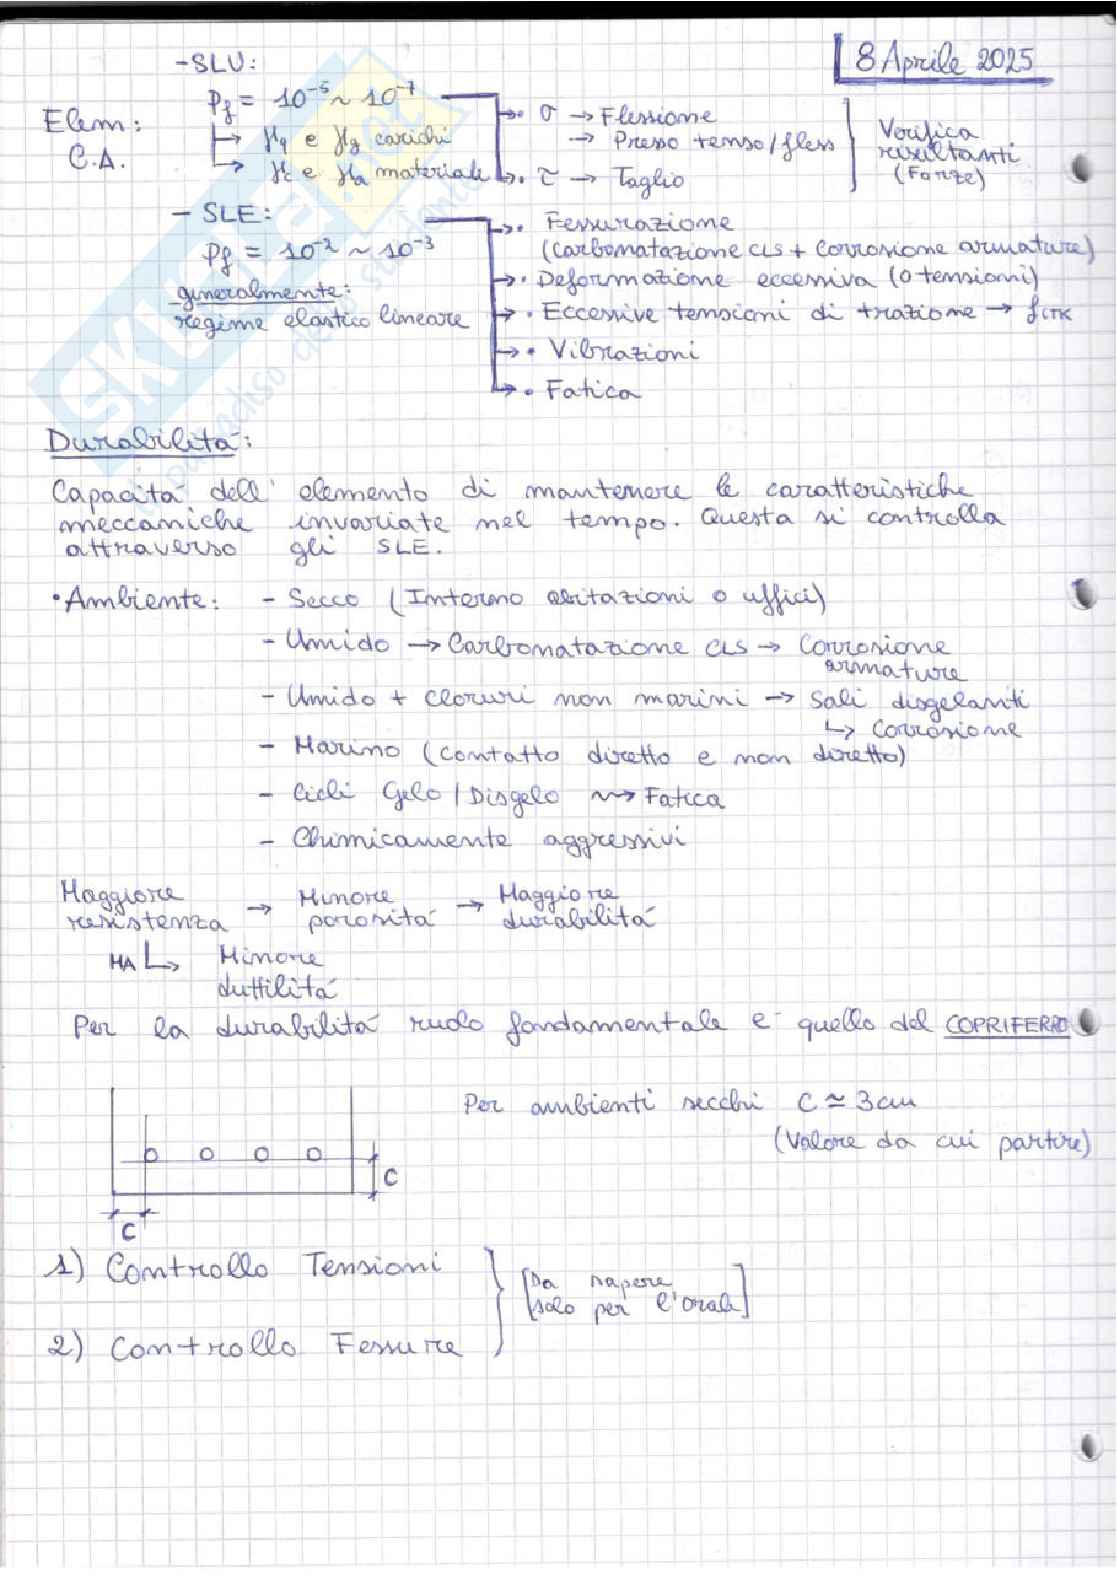 8 Aprile 2025
Elem:
C.A.
-SLU:
Pf = 10⁻⁵ ~ 10⁻⁷
→ γq e γg carichi
→ γc e γa materiale
• σ → Flessione
→ Presso tenso/fless
• τ → Taglio
Verifica
risultanti
(Forze)
- SLE:
Pf = 10⁻² ~ 10⁻³
generalmente:
regime elastico lineare
→ • Fessurazione
(carbonatazione cls + corrosione armature)
→ • Deformazione eccessiva (o tensioni)
→ • Eccessive tensioni di trazione → fctk
→ • Vibrazioni
→ • Fatica
Durabilità:
Capacità dell' elemento di mantenere le caratteristiche
meccaniche invariate nel tempo. Questa si controlla
attraverso gli SLE.
• Ambiente: - Secco (Interno abitazioni o uffici)
- Umido → Carbonatazione cls → Corrosione
armature
- Umido + cloruri non marini → Sali disgelanti
↳ corrosione
- Marino (contatto diretto e non diretto)
- Cicli Gelo / Disgelo ⇝ Fatica
- Chimicamente aggressivi
Maggiore resistenza → Minore porosità → Maggiore durabilità
MA ↳ Minore
duttilità
Per la durabilità ruolo fondamentale è quello del COPRIFERRO
Per ambienti secchi c ≃ 3cm
(Valore da cui partire)
C
C
1) Controllo Tensioni
2) Controllo Fessure
[Da sapere
solo per l'orale]
SKUOLA.net
il paradiso dello studente